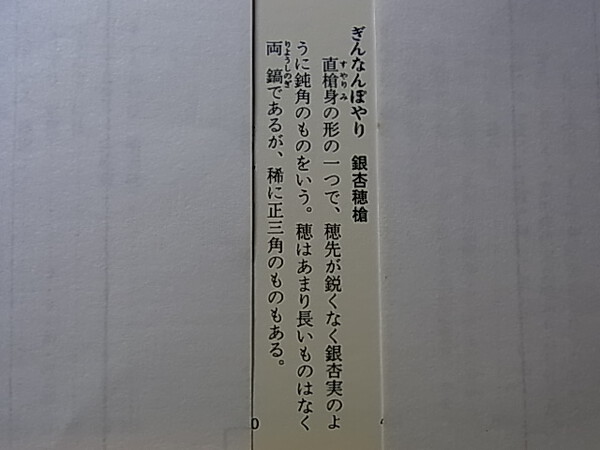 ぎんなんぼやり　銀杏穂槍
直槍身の形の一つで、穂先が鋭くなく銀杏実のよ
うに鈍角のものをいう。穂はあまり長いものはなく
両鎬であるが、稀に正三角のものもある。
すやりみ
りょうしのぎ
0